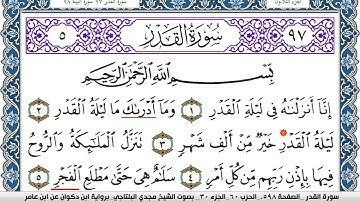 الجزء الثلاثون
٩٧ سُورَةُ القَدْرِ ٥
بِسْمِ اللَّهِ الرَّحْمَٰنِ الرَّحِيمِ
إِنَّا أَنزَلْنَٰهُ فِي لَيْلَةِ القَدْرِ ١ وَمَا أَدْرَىٰكَ مَا لَيْلَةُ القَدْرِ ٢
لَيْلَةُ القَدْرِ خَيْرٌ مِّنْ أَلْفِ شَهْرٍ ٣ تَنَزَّلُ المَلَٰٓئِكَةُ وَالرُّوحُ
فِيهَا بِإِذْنِ رَبِّهِم مِّن كُلِّ أَمْرٍ ٤ سَلَٰمٌ هِيَ حَتَّىٰ مَطْلَعِ الفَجْرِ ٥
سورة القدر الصفحة ٥٩٨ الحزب ٦٠ الجزء ٣٠ بصوت الشيخ مجدي البلتاجي برواية ابن ذكوان عن ابن عامر